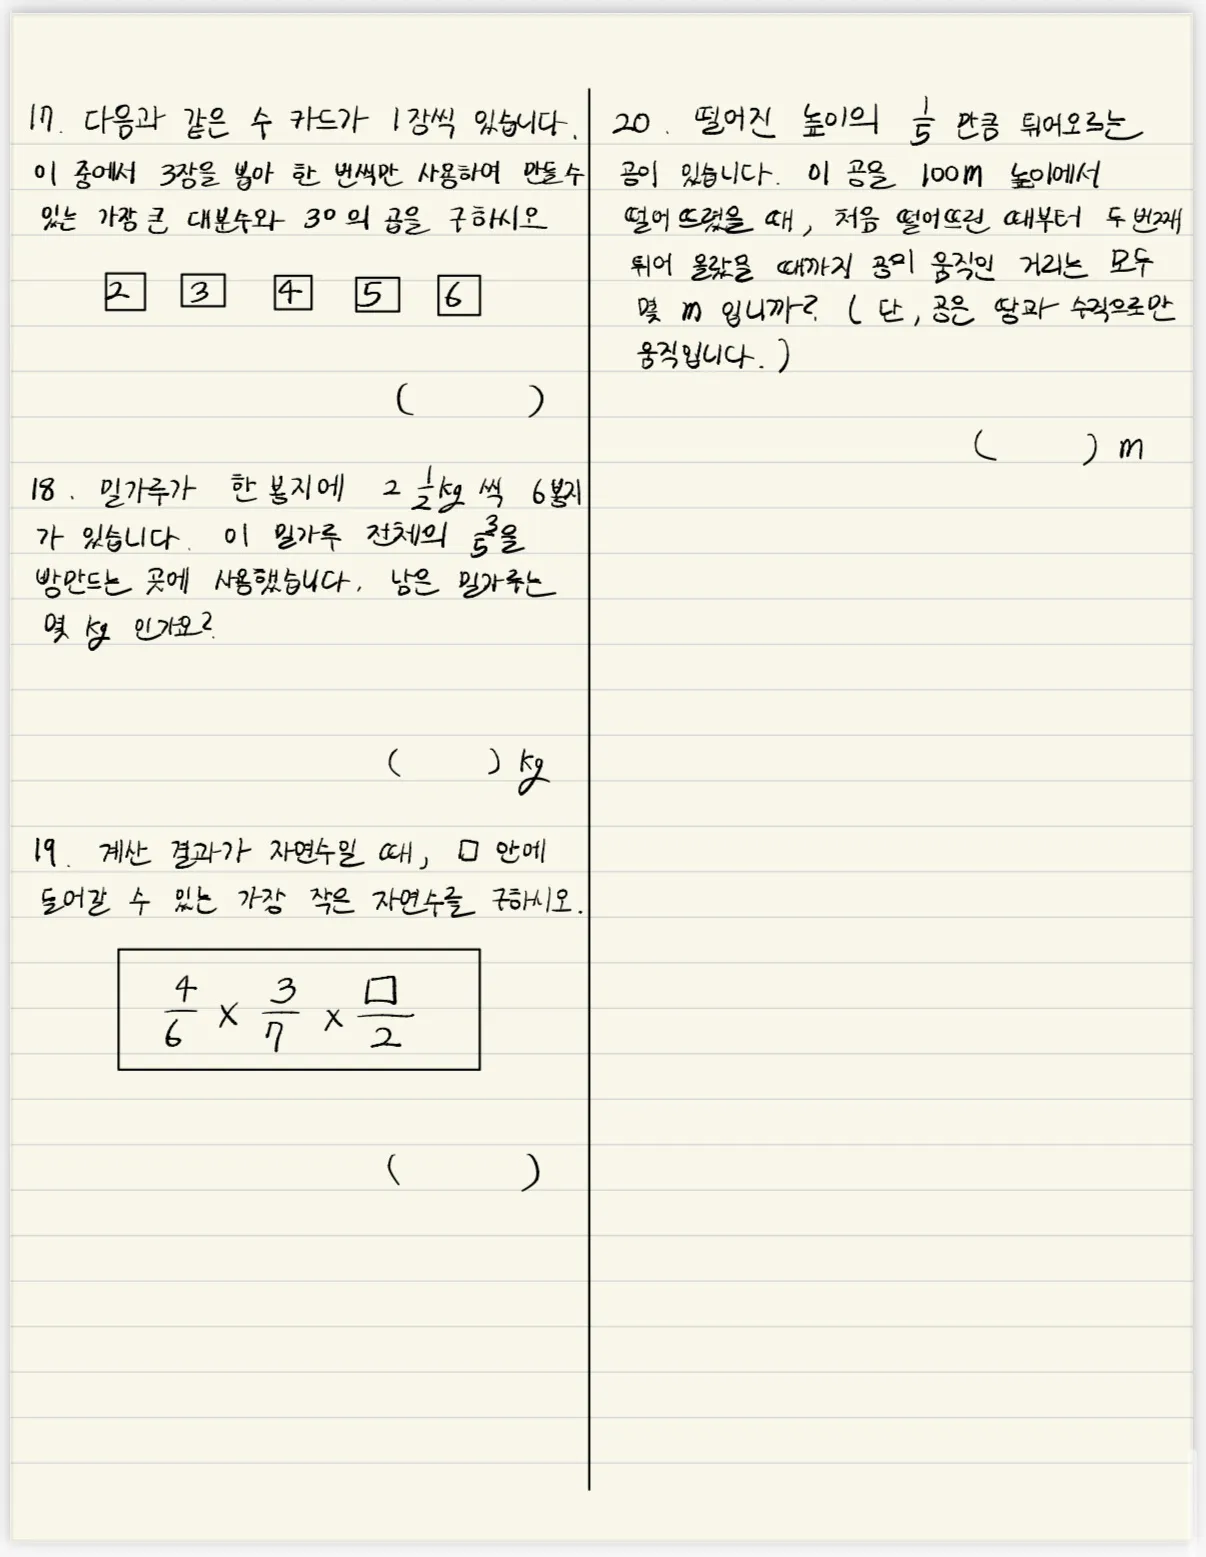 17. 다음과 같은 수 카드가 1장씩 있습니다.
이 중에서 3장을 뽑아 한 번씩만 사용하여 만들 수
있는 가장 큰 대분수와 30의 곱을 구하시오
2 3 4 5 6
( )
18. 밀가루가 한 봉지에 2 1/2 kg 씩 6봉지
가 있습니다. 이 밀가루 전체의 3/5을
빵만드는 곳에 사용했습니다. 남은 밀가루는
몇 kg 인가요?
( ) kg
19. 계산 결과가 자연수일 때, □ 안에
들어갈 수 있는 가장 작은 자연수를 구하시오.
4/6 × 3/7 × □/2
( )
20. 떨어진 높이의 1/5 만큼 튀어오르는
공이 있습니다. 이 공을 100m 높이에서
떨어뜨렸을 때, 처음 떨어뜨린 때부터 두번째
튀어 올랐을 때까지 공이 움직인 거리는 모두
몇 m 입니까? (단, 공은 땅과 수직으로만
움직입니다.)
( ) m